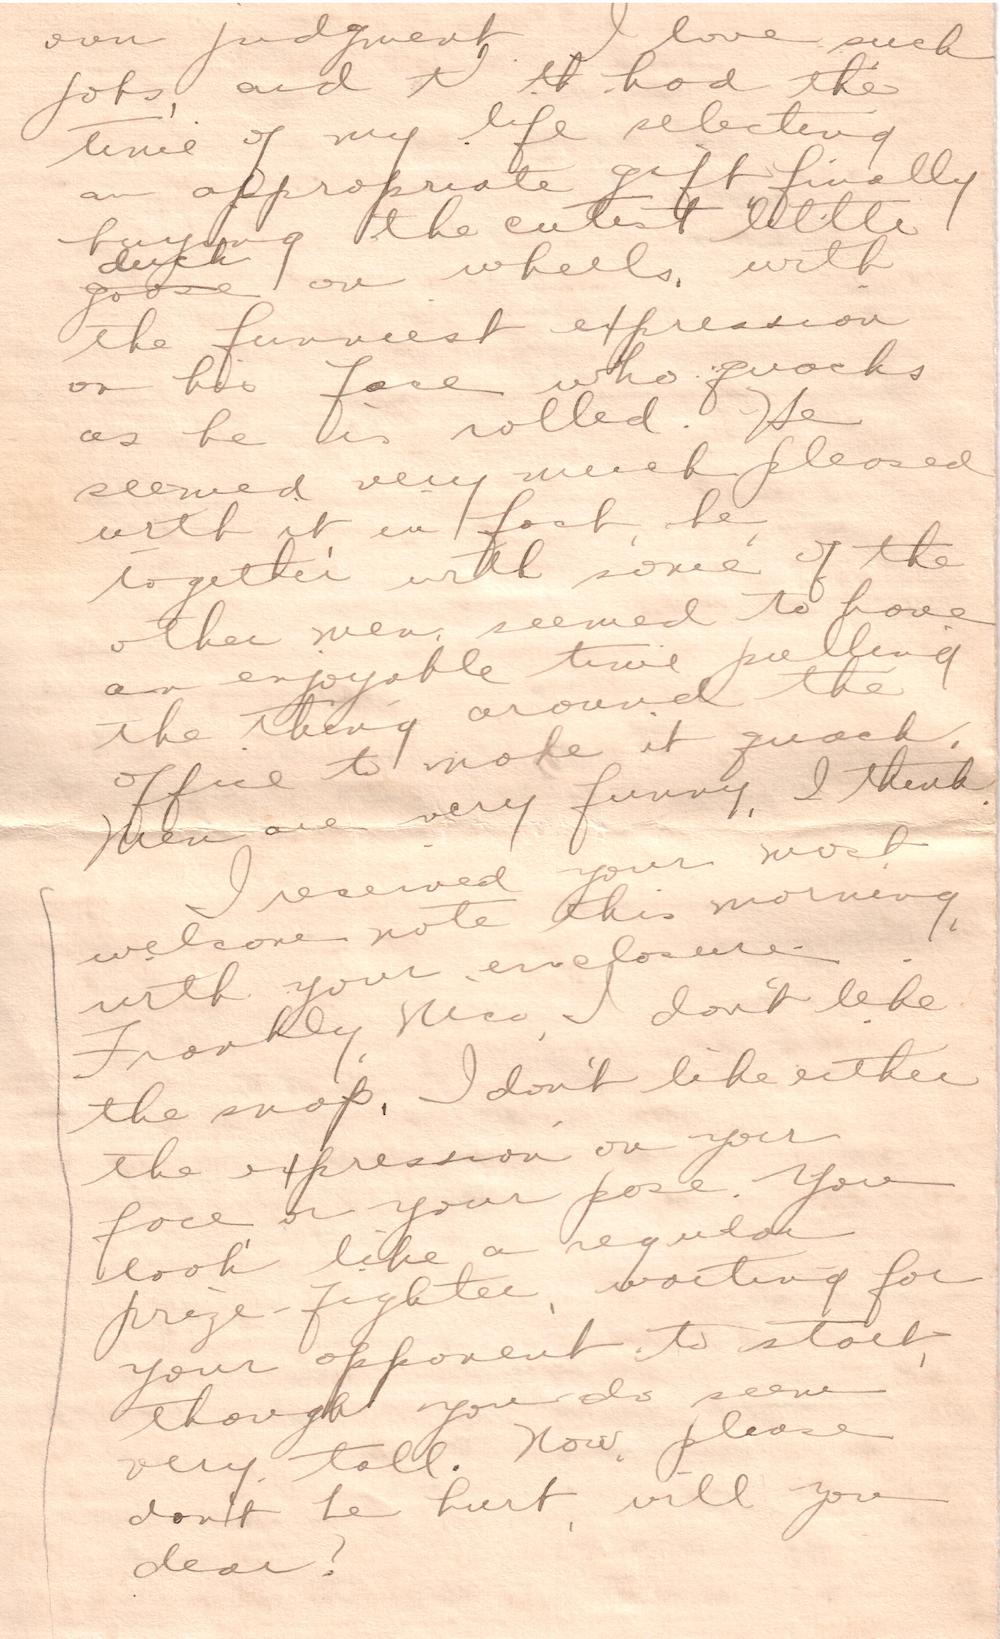 own judgment. I love such
jobs, and I had the
time of my life selecting
an appropriate gift finally
buying the cutest little
duck
goose on wheels, with
the funniest expression
on his face who quacks
as he is rolled. He
seemed very much pleased
with it in fact, he,
together with some of the
other men, seemed to have
an enjoyable time pulling
the thing around the
office to make it quack.
Men are very funny, I think.
I received your most
welcome note this morning,
with your enclosure.
Frankly, I don't like
the snap. I don't like either
the expression on your
face, or your pose. You
look like a regular
prize-fighter, waiting for
your opponent to start,
though you do seem
very tall. Now, please
don't be hurt, will you
dear?